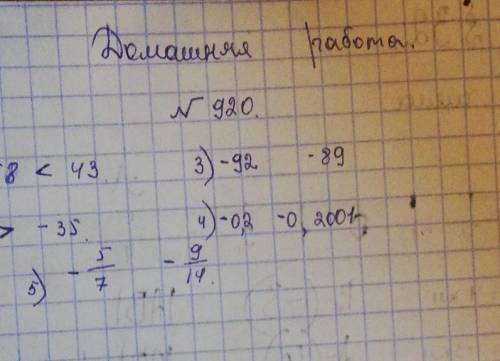 Домашняя работа.
N 920.
8 < 43 3) -92 -89
> -35. 4) -0,2 -0,2001.
5) -5/7 -9/14.